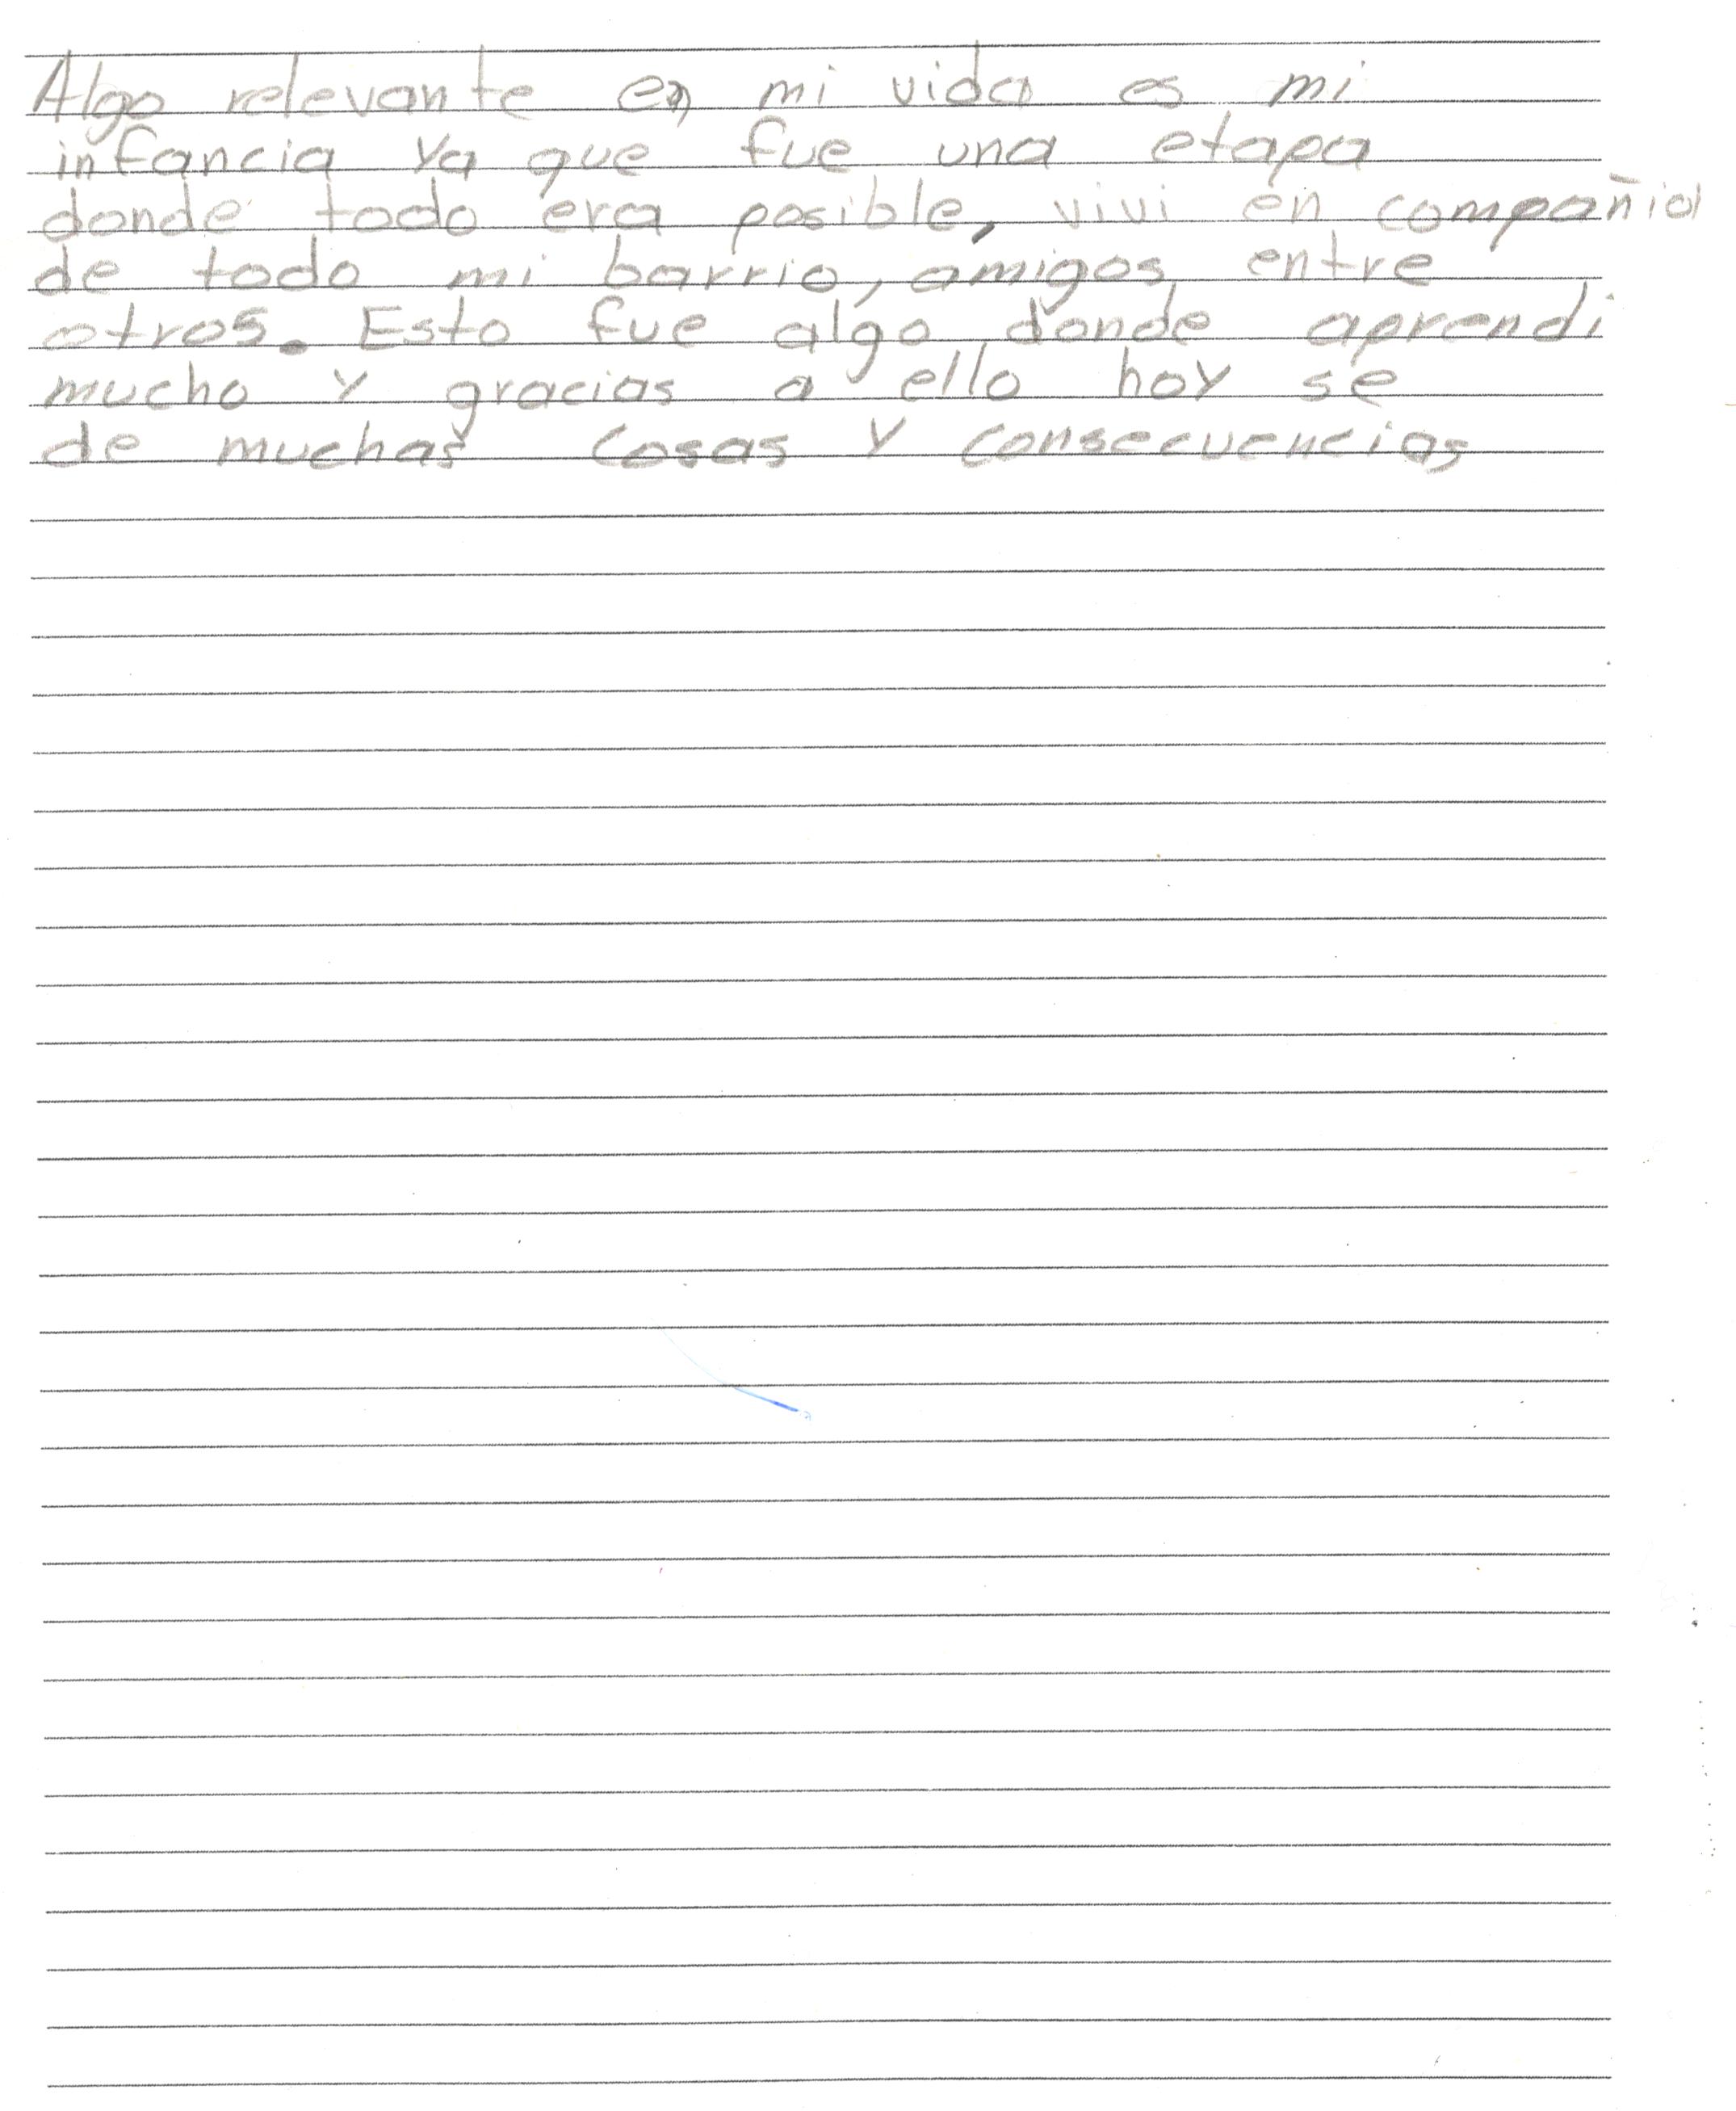 Algo relevante en mi vida es mi
infancia ya que fue una etapa
donde todo era posible, vivi en compañia
de todo mi barrio, amigos, entre
otros. Esto fue algo donde aprendi
mucho y gracias a ello hoy se
de muchas cosas y consecuencias